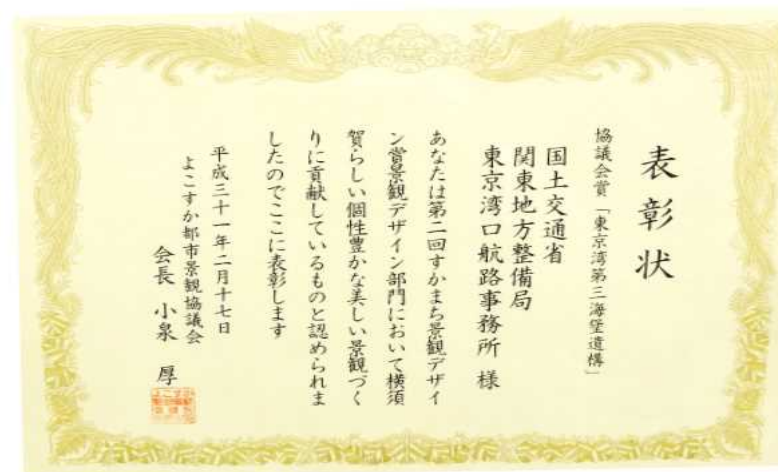 表彰状
協議会賞「東京湾第三海堡遺構」
国土交通省
関東地方整備局
東京湾口航路事務所 様
あなたは第二回すかまち景観デザイ
ン賞景観デザイン部門において横須
賀らしい個性豊かな美しい景観づく
りに貢献しているものと認められま
したのでここに表彰します
平成三十一年二月十七日
よこすか都市景観協議会
会長 小泉 厚